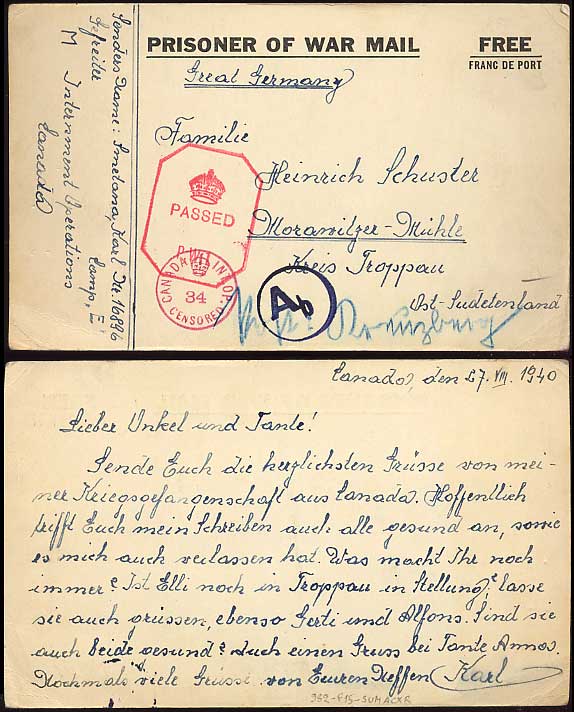 PRISONER OF WAR MAIL
FREE
FRANC DE PORT
Great Germany
Familie
Heinrich Schuster
Morawitzer-Mühle
Kreis Troppau
Ost-Sudetenland
Post: Kreuzberg
PASSED
CANADA INT. OP.
34
CENSORED
Ab
Senders Name: Smetana, Karl Nr. 16896
Gefreiter
M Internment Operations
Camp, E"
Canada
Canada, den 27. VIII. 1940
Lieber Onkel und Tante!
Sende Euch die herzlichsten Grüsse von mei-
ner Kriegsgefangenschaft aus Canada. Hoffentlich
trifft Euch mein Schreiben auch alle gesund an, sowie
es mich auch verlassen hat. Was macht Ihr noch
immer? Ist Elli noch in Troppau in Stellung? lasse
sie auch grüssen, ebenso Gerti und Alfons. Sind sie
auch beide gesund? Auch einen Gruss bei Tante Annas.
Nochmals viele Grüsse von Euren Neffen Karl